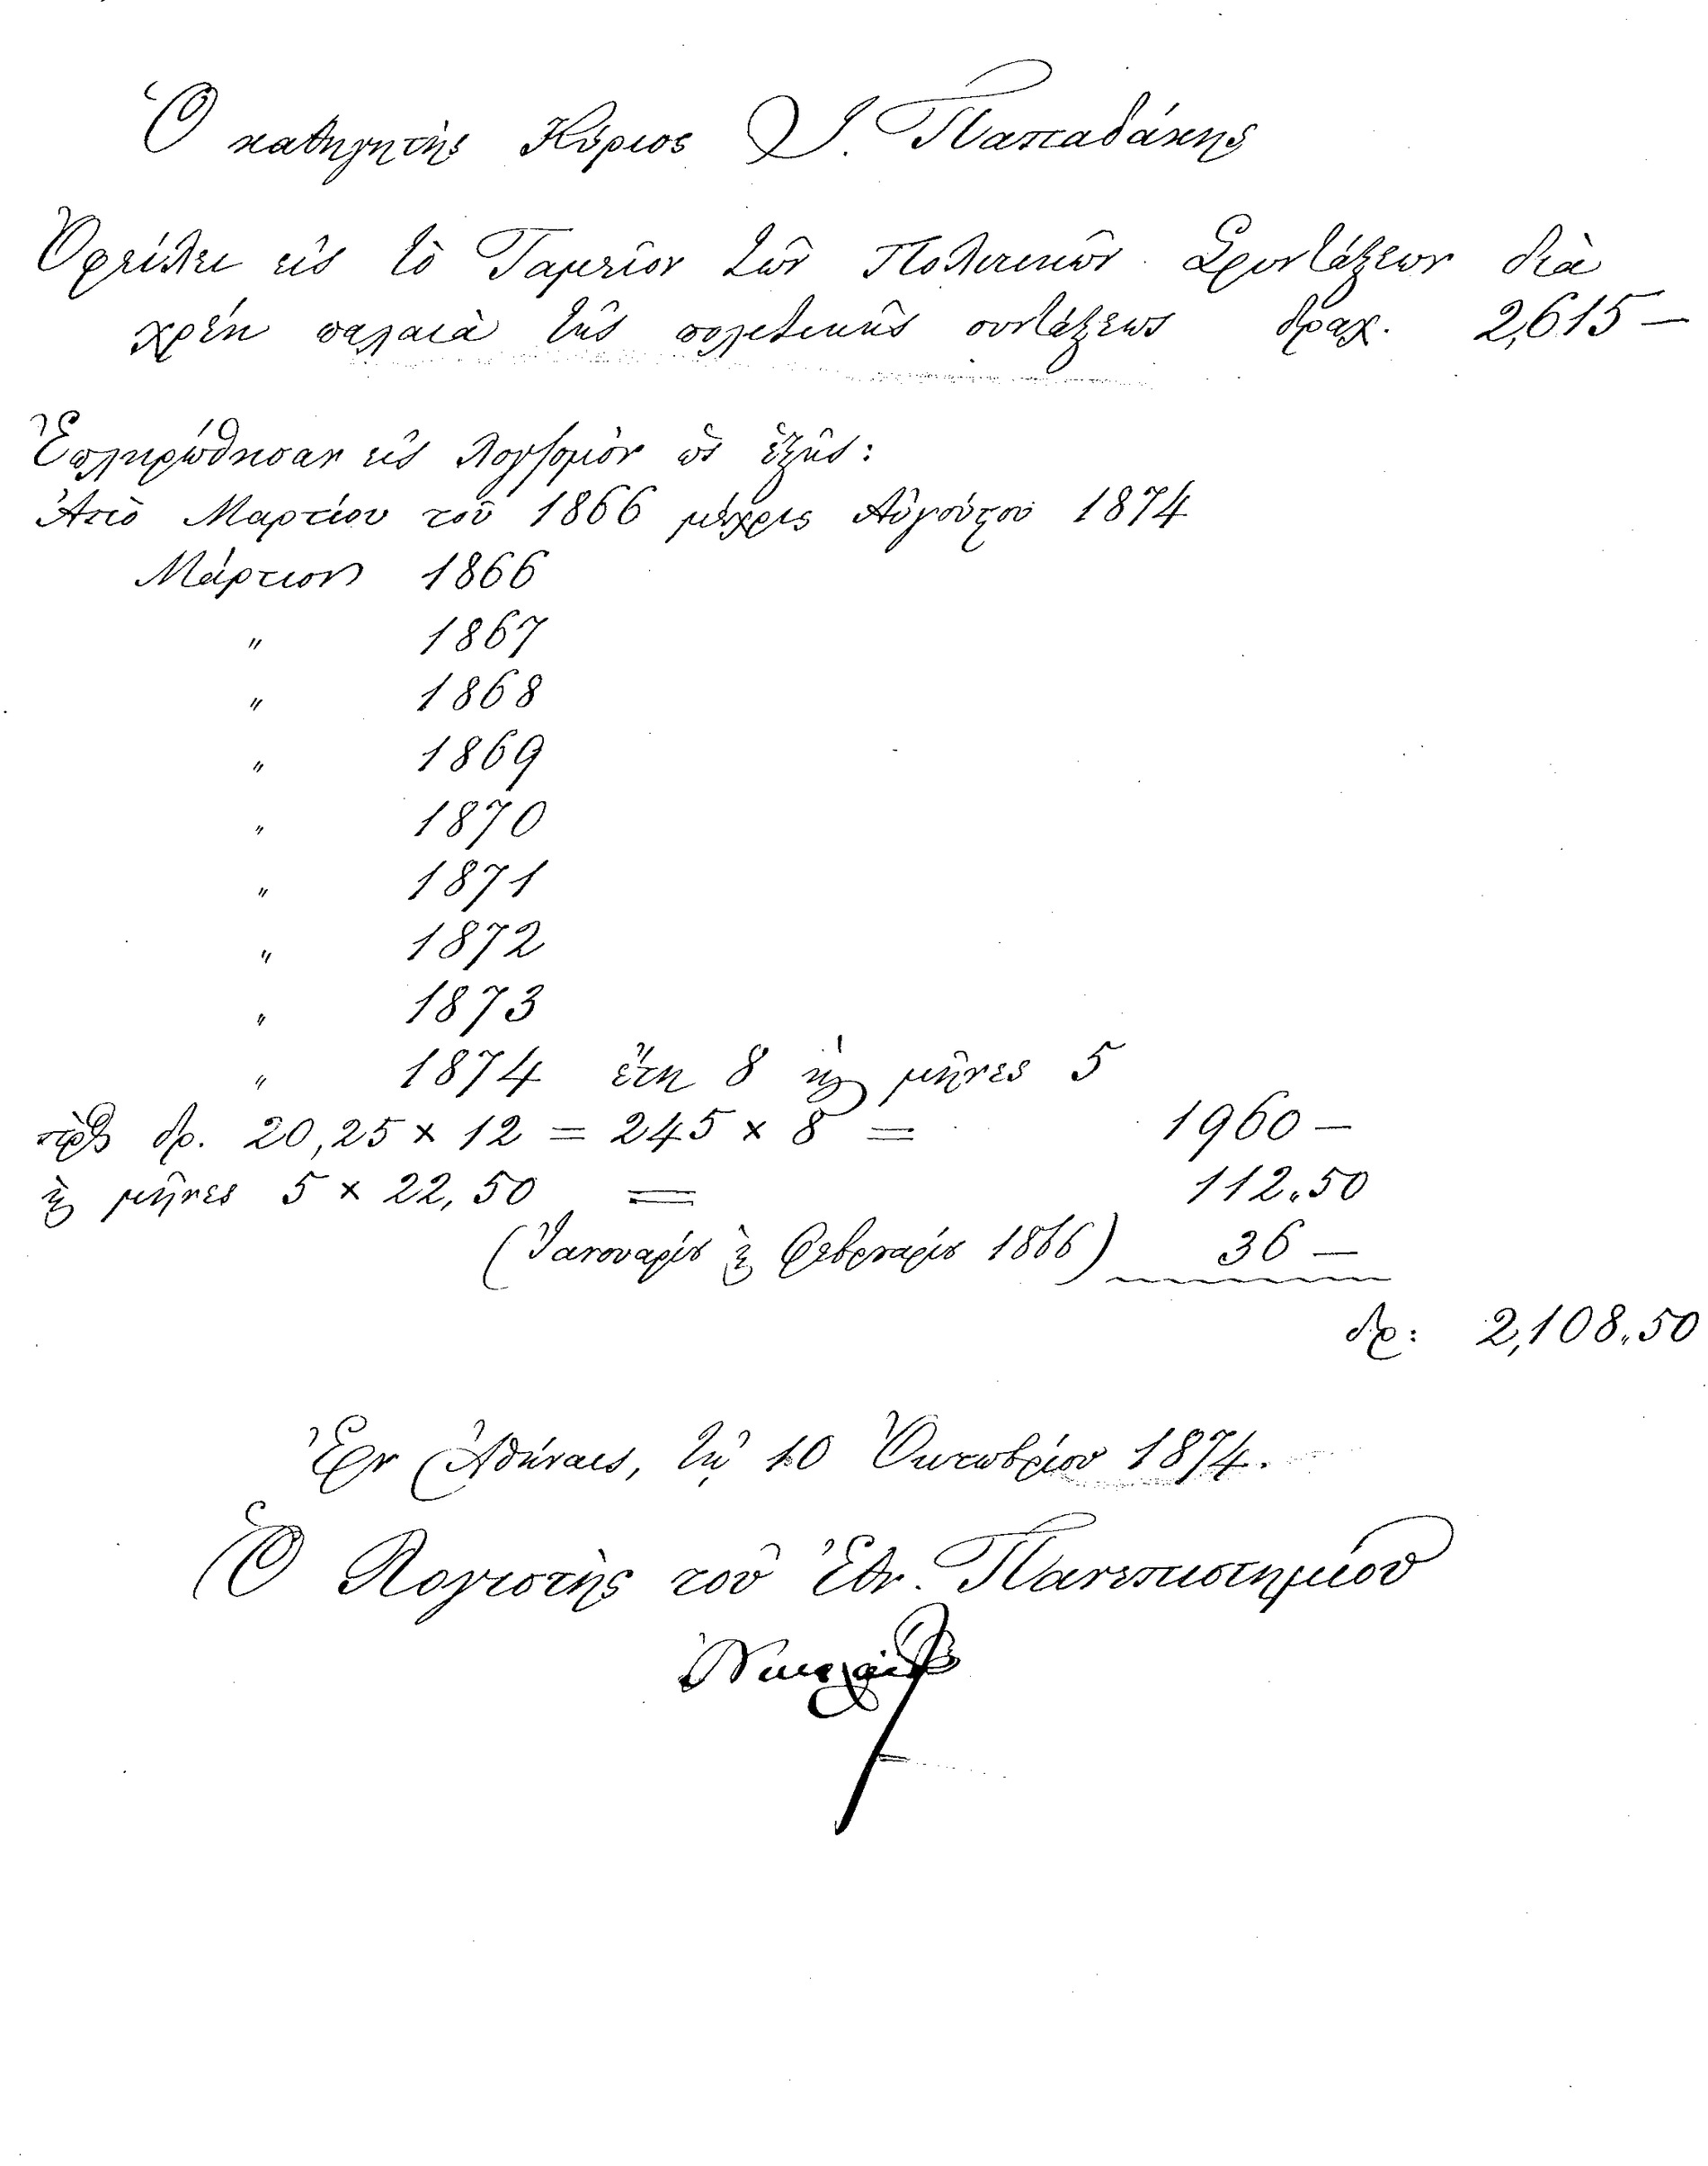 Ὁ καθηγητὴς Κύριος Ἰ. Παπαδάκης
Ὀφείλει εἰς τὸ Ταμεῖον τῶν Πολιτικῶν Συντάξεων διὰ
χρέη παλαιὰ τῆς πολιτικῆς συντάξεως δραχ. 2,615 —
Ἐπληρώθησαν εἰς λογ/σμὸν ὡς ἑξῆς:
Ἀπὸ Μαρτίου τοῦ 1866 μέχρις Αὐγούστου 1874
Μάρτιον 1866
" 1867
" 1868
" 1869
" 1870
" 1871
" 1872
" 1873
" 1874 ἔτη 8 ϗ μῆνες 5
πρὸς δρ. 20,25 × 12 = 245 × 8 = 1960 —
ϗ μῆνες 5 × 22,50 = 112.50
(Ἰανουαρίου ϗ Φεβρουαρίου 1866) 36 —
δρ: 2,108.50
Ἐν Ἀθήναις, τῇ 10 Ὀκτωβρίου 1874.
Ὁ Λογιστὴς τοῦ Ἐθν. Πανεπιστημίου